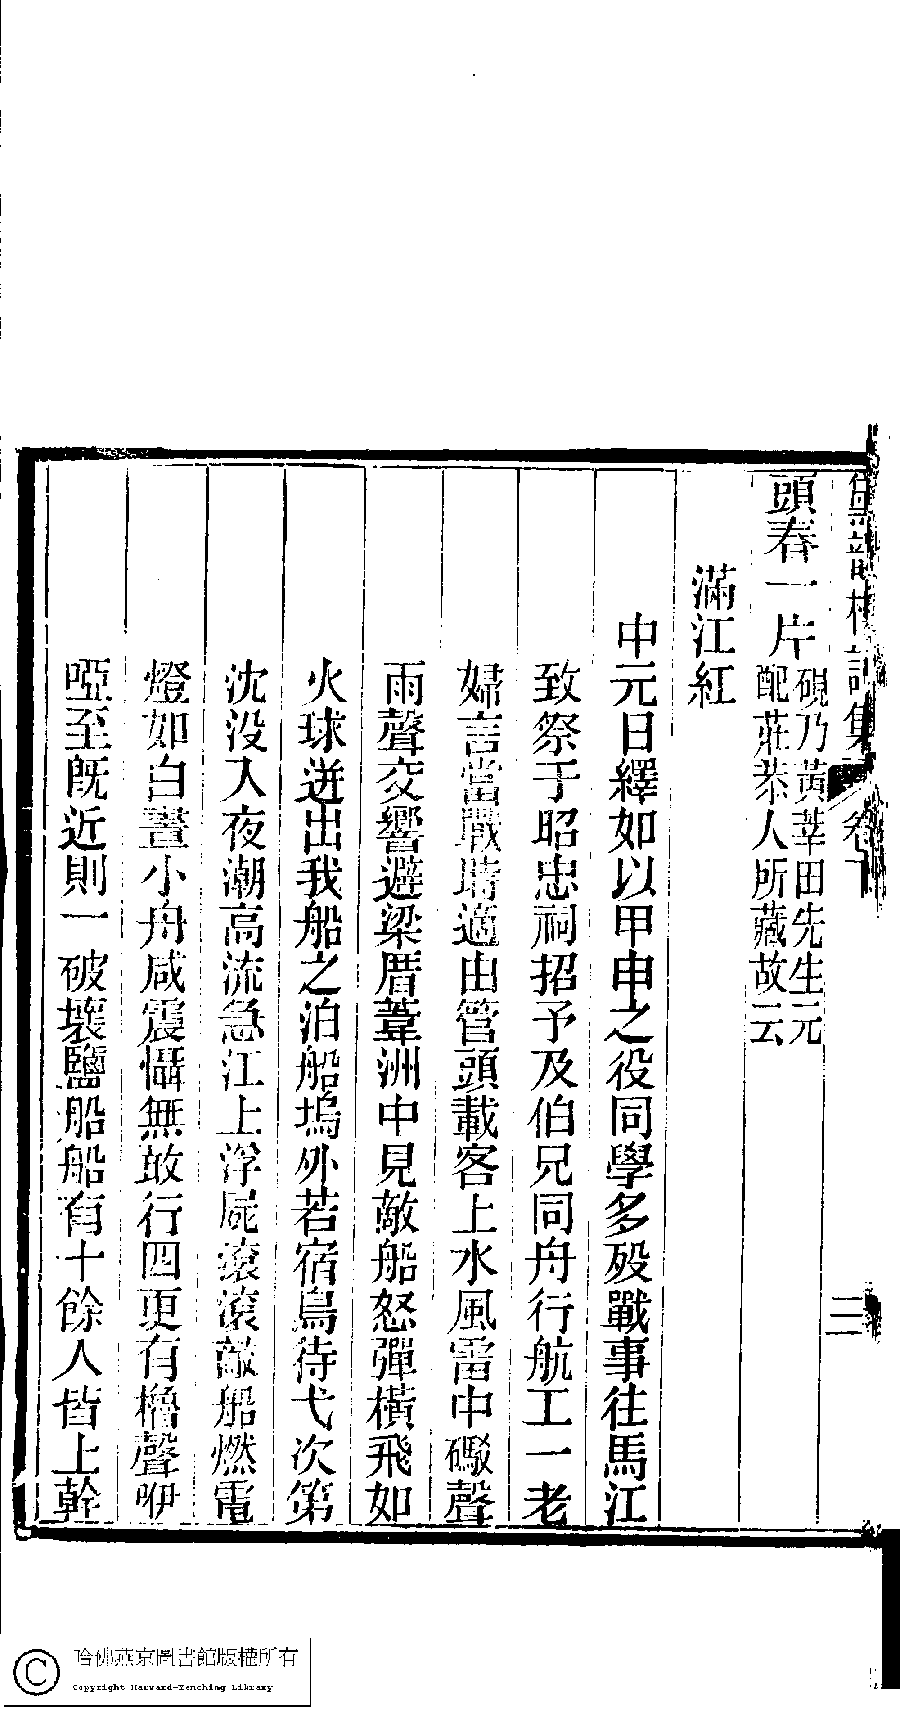 頭春一片硯乃黃莘田先生元
配莊恭人所藏故云
滿江紅
中元日繹如以甲申之役同學多歿戰事往馬江
致祭于昭忠祠招予及伯兄同舟行航工一老
婦言當戰時適由管頭載客上水風雷中礮聲
雨聲交響避梁厝葦洲中見敵船怒彈橫飛如
火球迸出我船之泊船塢外若宿鳥待弋次第
沈没入夜潮高流急江上浮屍滾滾敵船燃電
燈如白晝小舟咸震懾無敢行四更有櫓聲咿
啞至既近則一破壞鹽船船有十餘人皆上幹
集
卷
二
哈佛燕京圖書館版權所有
Copyright Harvard-Yenching Library